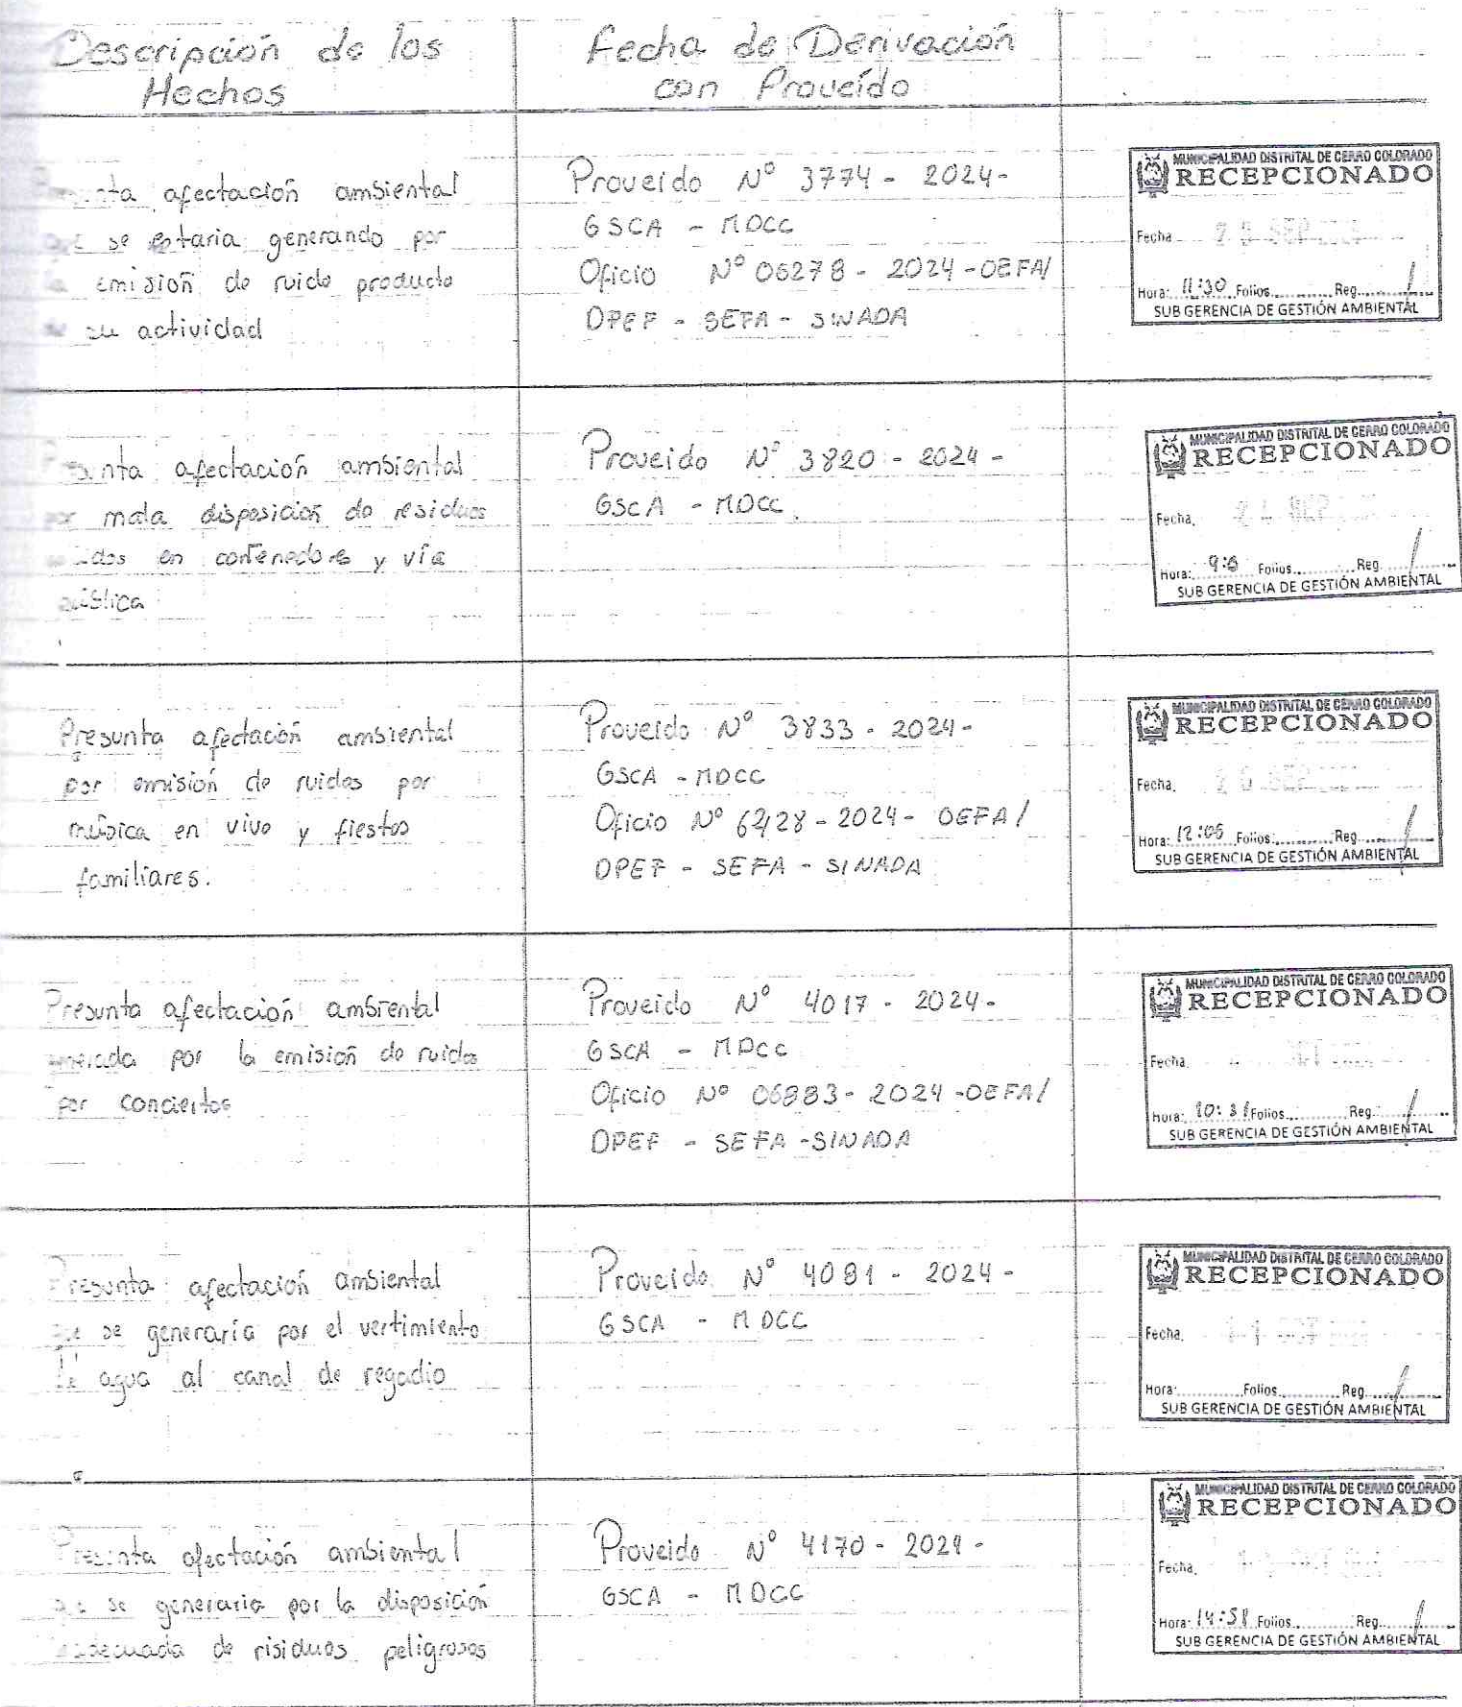 Descripción de los
Hechos
Fecha de Derivación
con Proveído
afectación ambiental
se estaria generando por
emisión de ruido producto
su actividad
Proveido Nº 3774 - 2024 -
GSCA - MDCC
Oficio Nº 06278 - 2024 - OEFA/
DPEF - SEFA - SINADA
MUNICIPALIDAD DISTRITAL DE CERRO COLORADO
RECEPCIONADO
Fecha
Hora: 11:30 Folios Reg.
SUB GERENCIA DE GESTIÓN AMBIENTAL
afectación ambiental
mala disposición de residuos
en contenedores y vía
Proveido Nº 3820 - 2024 -
GSCA - MDCC
MUNICIPALIDAD DISTRITAL DE CERRO COLORADO
RECEPCIONADO
Fecha
Hora: Folios Reg.
SUB GERENCIA DE GESTIÓN AMBIENTAL
Presunta afectación ambiental
por emisión de ruidos por
música en vivo y fiestas
familiares.
Proveido Nº 3833 - 2024 -
GSCA - MDCC
Oficio Nº - 2024 - OEFA/
DPEF - SEFA - SINADA
MUNICIPALIDAD DISTRITAL DE CERRO COLORADO
RECEPCIONADO
Fecha
Hora: 12:06 Folios Reg.
SUB GERENCIA DE GESTIÓN AMBIENTAL
Presunta afectación ambiental
por la emisión de ruidos
por conciertos
Proveido Nº 4017 - 2024 -
GSCA - MDCC
Oficio Nº 06883 - 2024 - OEFA/
DPEF - SEFA - SINADA
MUNICIPALIDAD DISTRITAL DE CERRO COLORADO
RECEPCIONADO
Fecha
Hora: 10:31 Folios Reg.
SUB GERENCIA DE GESTIÓN AMBIENTAL
Presunta afectación ambiental
se generaría por el vertimiento
agua al canal de regadio
Proveido Nº 4081 - 2024 -
GSCA - MDCC
MUNICIPALIDAD DISTRITAL DE CERRO COLORADO
RECEPCIONADO
Fecha
Hora Folios Reg.
SUB GERENCIA DE GESTIÓN AMBIENTAL
Presunta afectación ambiental
se generaria por la disposición
de risiduos peligrosos
Proveido Nº 4170 - 2024 -
GSCA - MDCC
MUNICIPALIDAD DISTRITAL DE CERRO COLORADO
RECEPCIONADO
Fecha
Hora: 14:58 Folios Reg.
SUB GERENCIA DE GESTIÓN AMBIENTAL